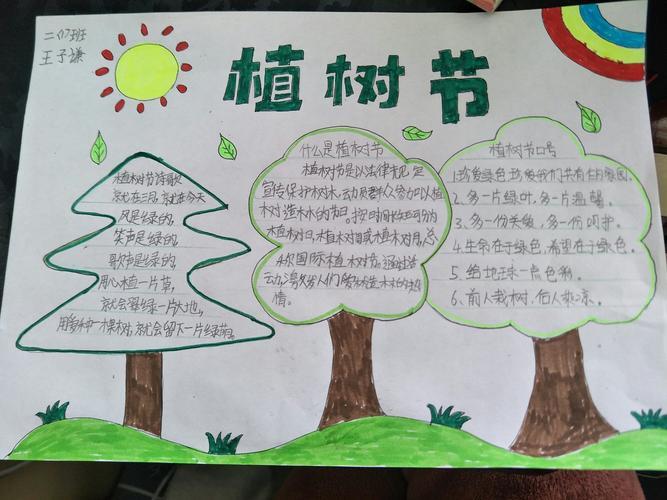 二(7)班
王子谦
植树节
植树节诗歌
就在三月,就在今天
风是绿的,
笑声是绿的,
歌声是绿的,
用心植一片草,
就会翠绿一片大地,
用多种一棵树,就会留下一片绿荫。
什么是植树节
植树节是以法律规定
宣传保护树木,动员群众参加以植
树造木的节日。按时间长短可分为
植树日、植树周或植树月,总
称国际植树节。通过
动激发人们爱林造林的热
情。
植树节口号
1.珍爱绿色,珍爱我们共有的家园。
2.多一片绿叶,多一片温馨。
3.多一份关爱,多一份呵护。
4.生命在于绿色,希望在于绿色。
5.给地球一点色彩。
6.前人栽树,后人乘凉。